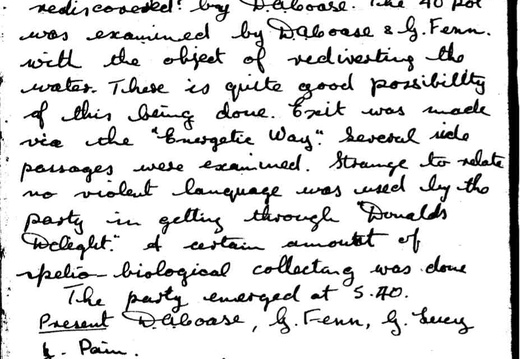 rediscovered! by D.Aboase. The 40 pot
was examined by D.Aboase & G. Fenn.
with the object of rediverting the
water. There is quite good possibility
of this being done. Exit was made
via the "Energetic Way". Several side
passages were examined. Strange to relate
no violent language was used by the
party in getting through "Donalds
Deleght." A certain amount of
spelio-biological collecting was done
The party emerged at 5.40.
Present D.Aboase, G. Fenn, G.
Pain.